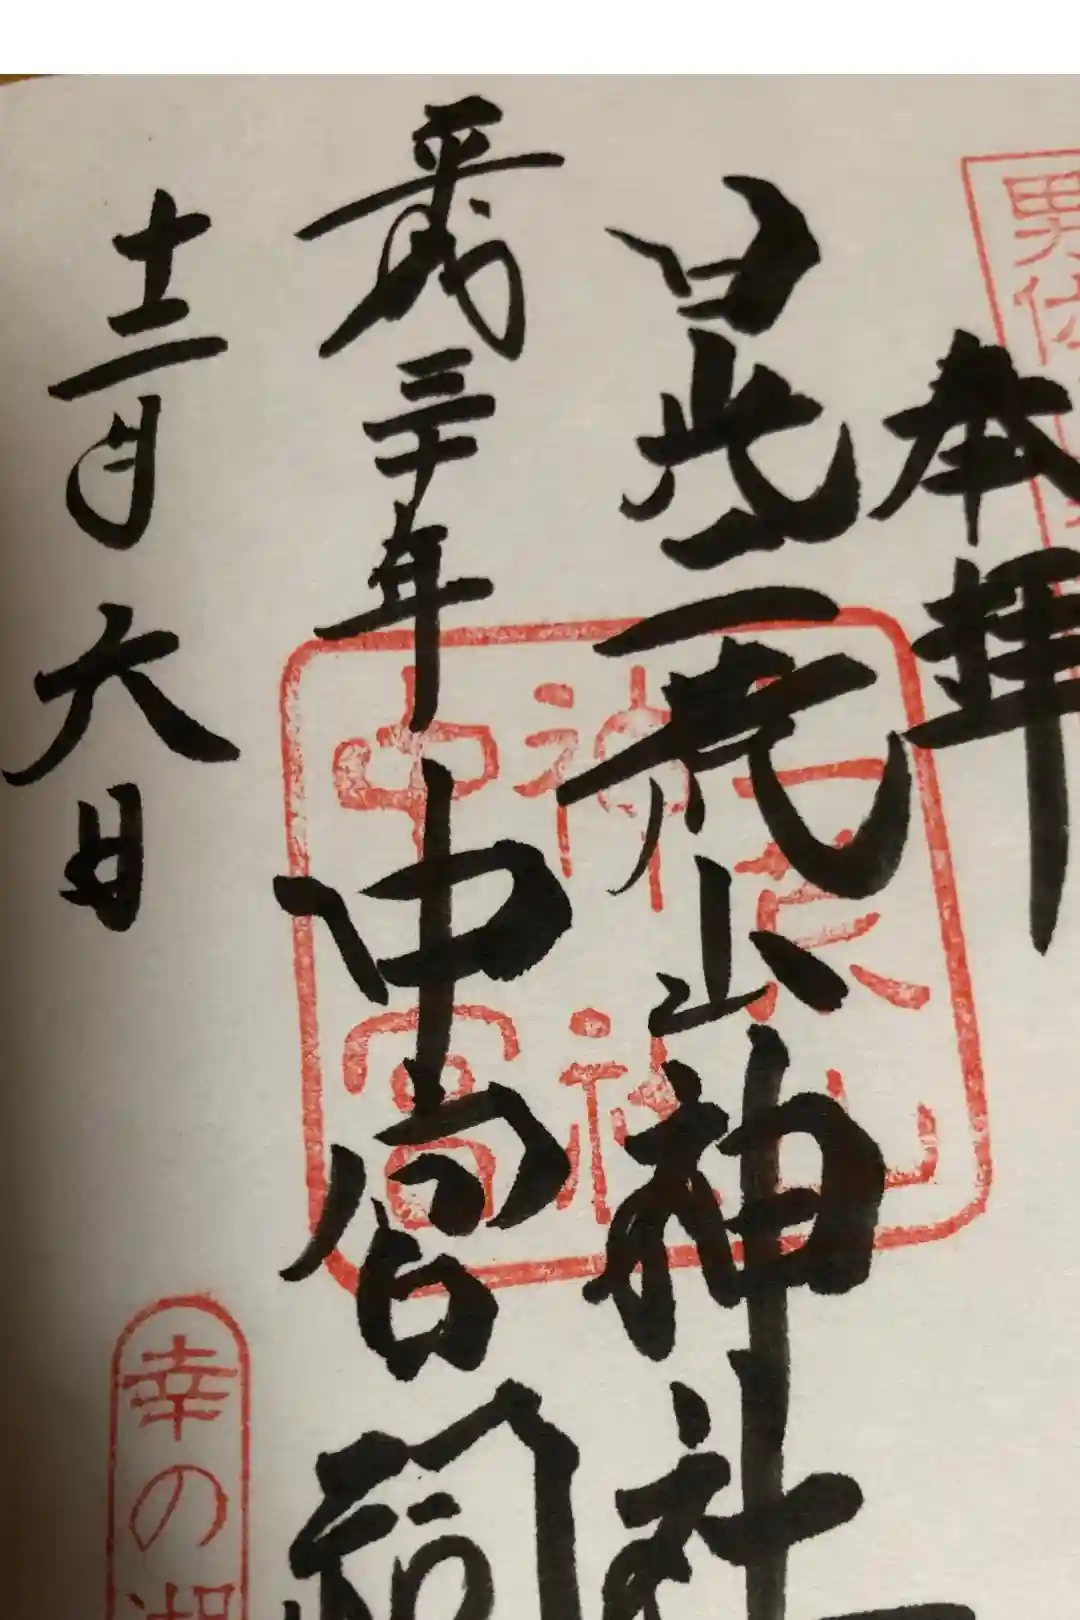 男体
奉拝
日光二荒山神社
中宮祠
平成三十年
十二月六日
二荒山
神社
中宮
幸の湖